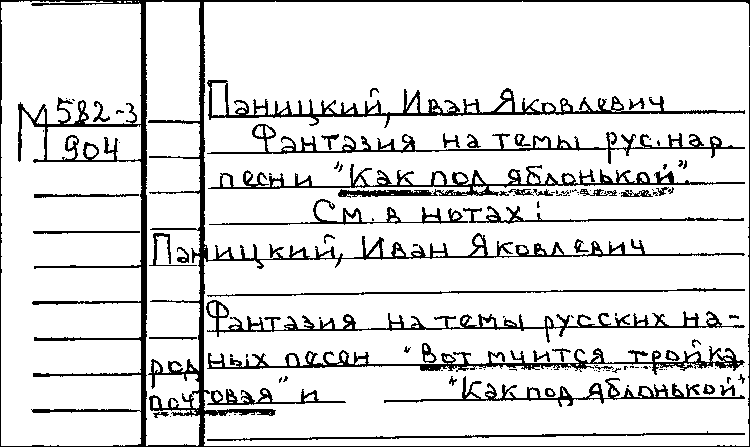 М 582-3
904
Паницкий, Иван Яковлевич
Фантазия на темы рус. нар.
песни "Как под яблонькой".
См. в нотах:
Паницкий, Иван Яковлевич
Фантазия на темы русских на-
родных песен "Вот мчится тройка
почтовая" и "Как под яблонькой".